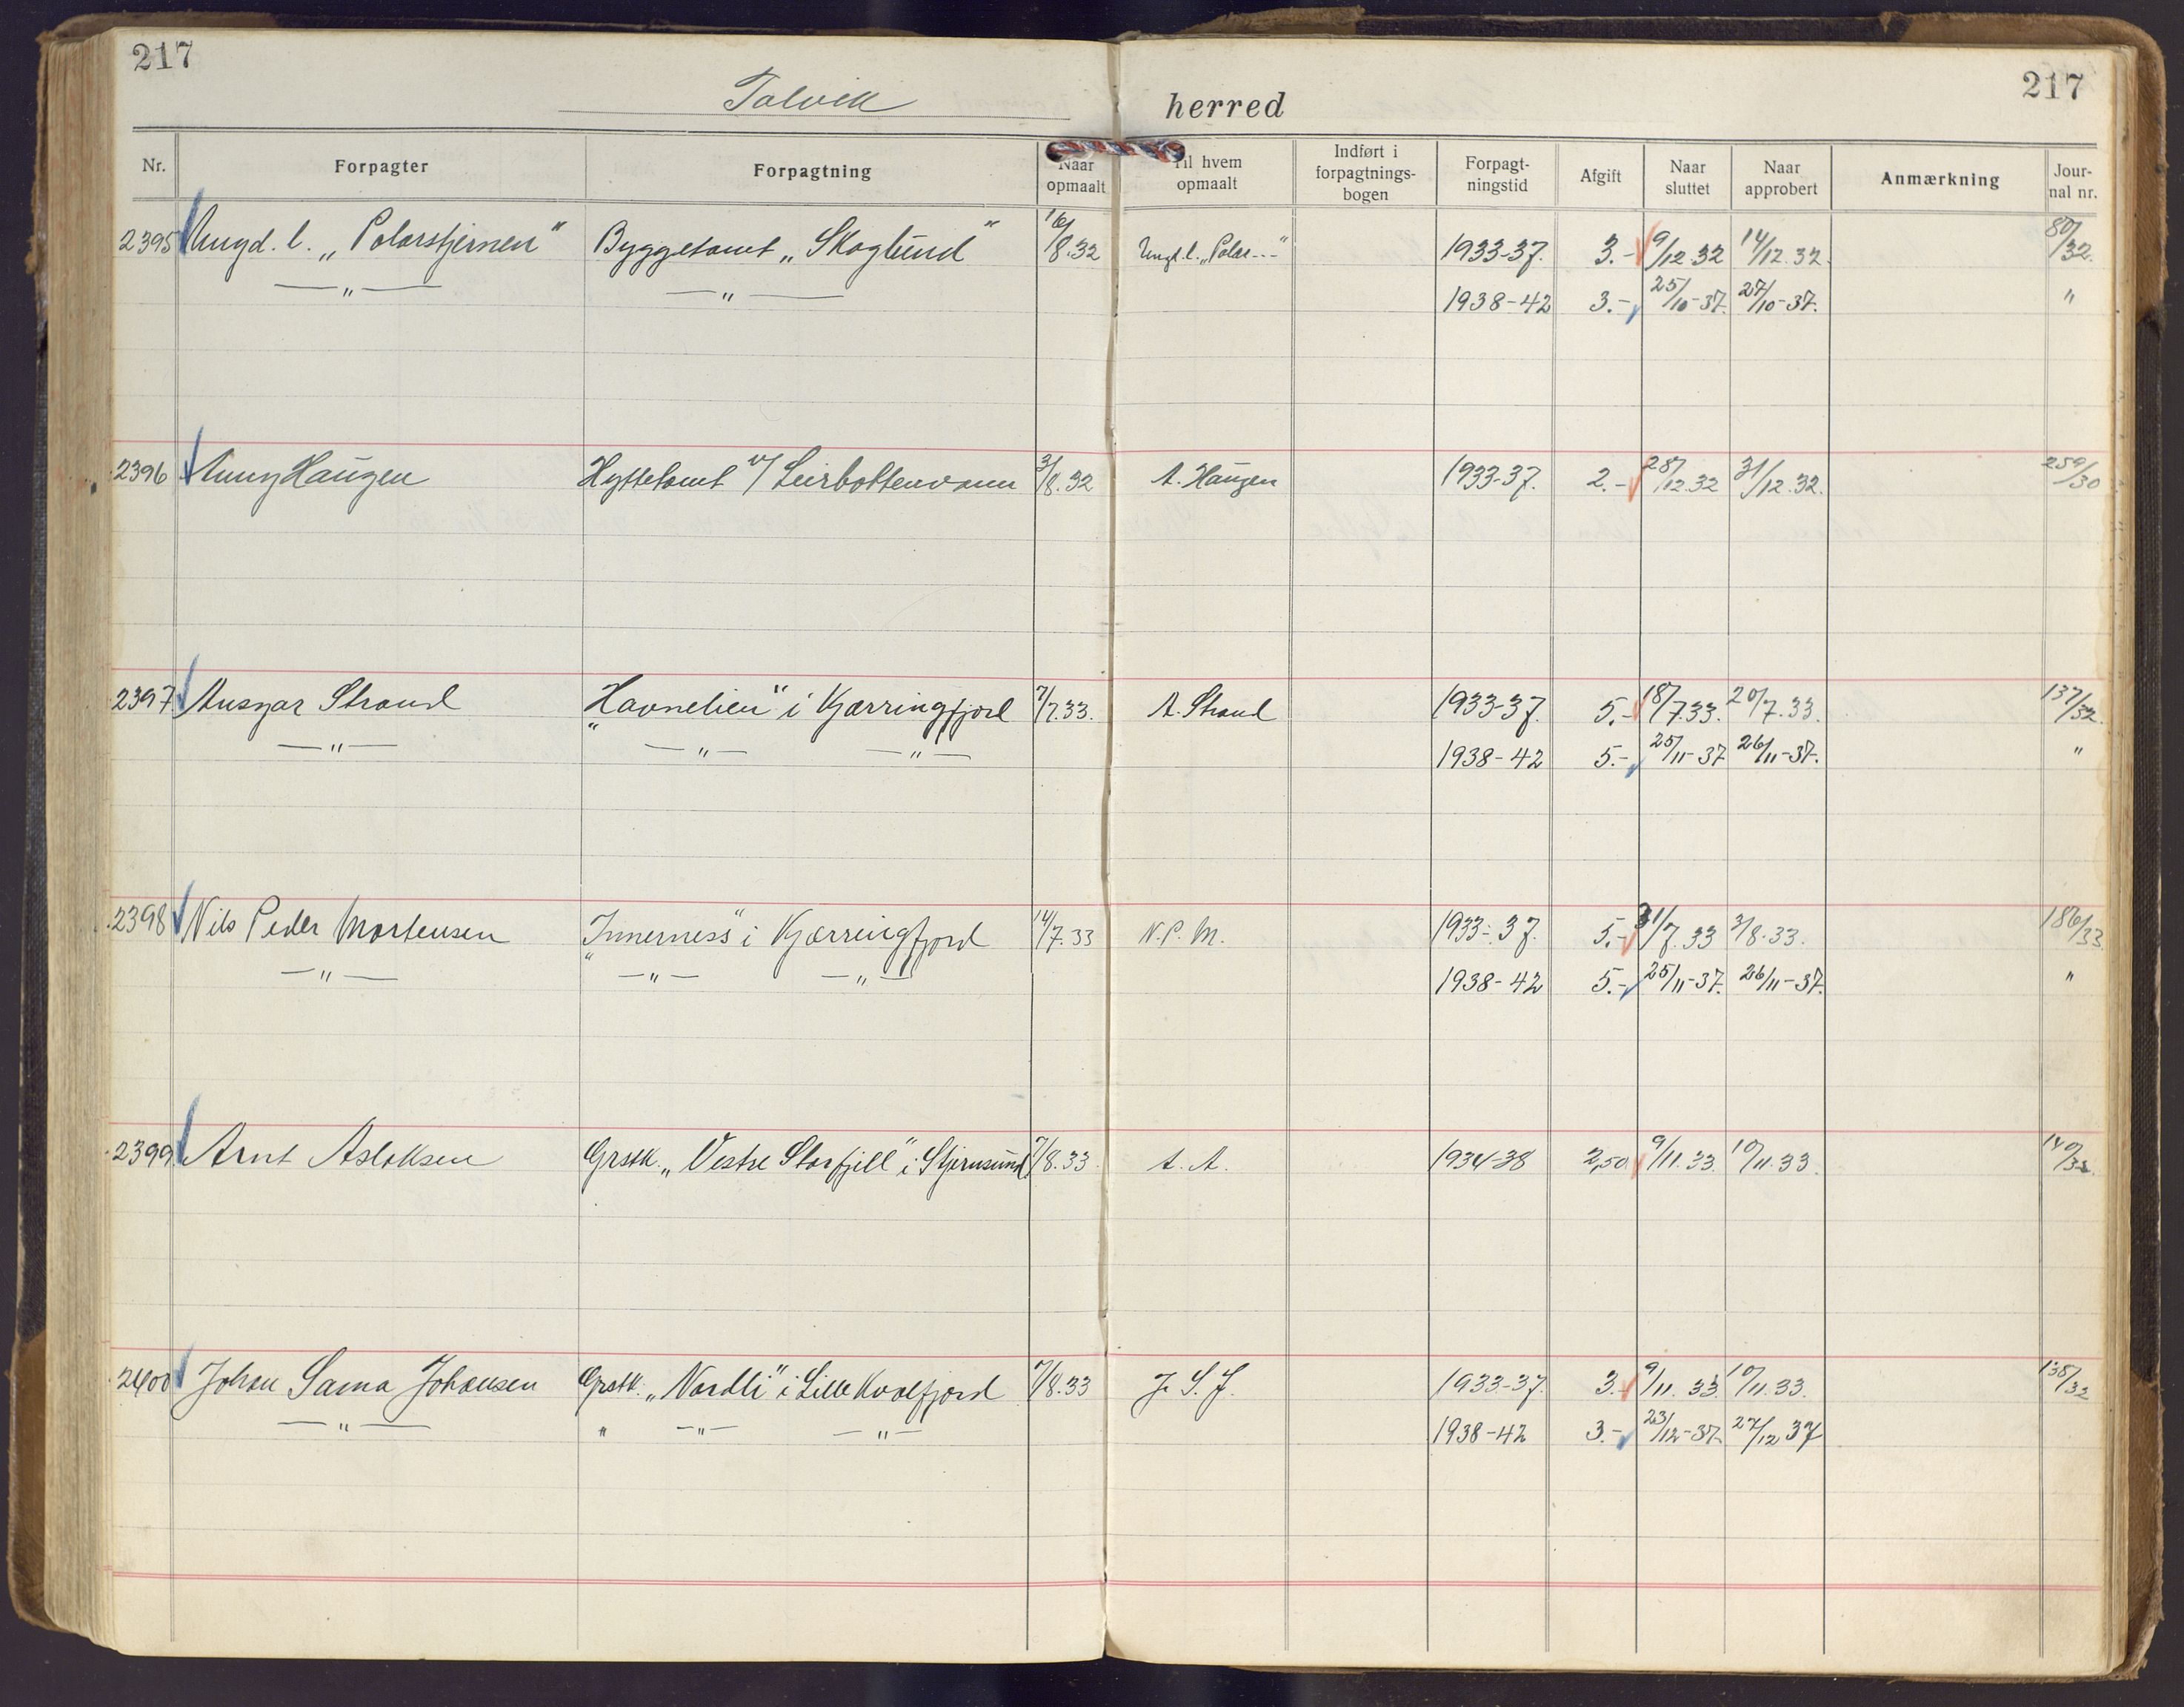 217
217
Talvik herred
Nr. Forpagter Forpagtning Naar opmaalt Til hvem opmaalt Indført i forpagtnings-bogen Forpagt-ningstid Afgift Naar sluttet Naar approbert Anmærkning Jour-nal nr.
2395 Ungd. l. „Polarstjernen" Byggetomt „Skoglund" 16/8.32 Ungd. l. „Polar---" 1933-37. 3.- 9/12.32 14/12.32. 80/32.
—"— —"— 1938-42 3.- 25/10-37. 27/10-37. "
2396 Anny Haugen Hyttetomt v/ Leirbottenvann 3/8.32 A. Haugen 1933-37. 2.- 28/12.32 31/12.32. 259/30
2397 Ansgar Strand „Havnelien" i Kjærringfjord 7/7.33. A. Strand 1933-37. 5.- 18/7.33. 20/7.33. 137/32.
—"— —"— —"— 1938-42 5.- 25/11-37 26/11-37. "
2398 Nils Peder Mortensen „Innerness" i Kjærringfjord 14/7.33 N. P. M. 1933-37. 5.- 31/7.33 3/8.33. 186/33.
—"— —"— —"— 1938-42 5.- 25/11-37. 26/11-37. "
2399. Arnt Aslaksen Grstk. „Vestre Storfjell" i Stjernsund 7/8.33. A. A. 1934-38 2,50 9/11.33. 10/11.33. 140/32.
2400 Johan Sama Johansen Grstk. „Nordli" i Lille Kvalfjord 7/8.33 J. S. J. 1933-37. 3.- 9/11.33. 10/11.33. 138/32
—"— " —"— —"— 1938-42 3.- 23/12-37. 27/12 37